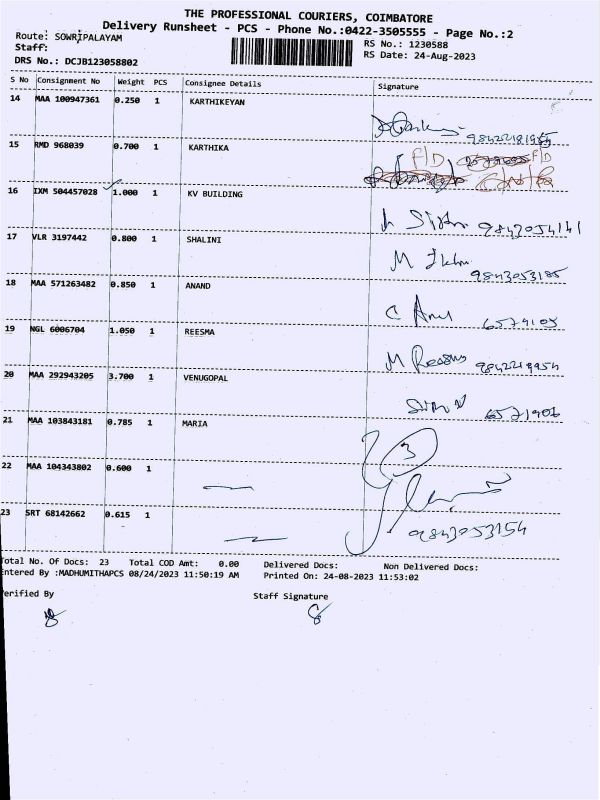 THE PROFESSIONAL COURIERS, COIMBATORE
Delivery Runsheet - PCS - Phone No.:0422-3505555 - Page No.:2
Route: SOWRIPALAYAM
RS No.: 1230588
Staff:
RS Date: 24-Aug-2023
DRS No.: DCJB123058802
S No Consignment No Weight PCS Consignee Details Signature
14 MAA 100947361 0.250 1 KARTHIKEYAN
9842218195
15 RMD 968039 0.700 1 KARTHIKA
F/D F/D
16 IXM 504457028 1.000 1 KV BUILDING
9843054141
17 VLR 3197442 0.800 1 SHALINI
M
9843053185
18 MAA 571263482 0.850 1 ANAND
C
6579105
19 NGL 6006704 1.050 1 REESMA
M Reesma 9842219954
20 MAA 292943205 3.700 1 VENUGOPAL
6571906
21 MAA 103843181 0.785 1 MARIA
3
22 MAA 104343802 0.600 1
23 SRT 68142662 0.615 1
9843053154
Total No. Of Docs: 23 Total COD Amt: 0.00 Delivered Docs: Non Delivered Docs:
Entered By :MADHUMITHAPCS 08/24/2023 11:50:19 AM Printed On: 24-08-2023 11:53:02
Verified By Staff Signature